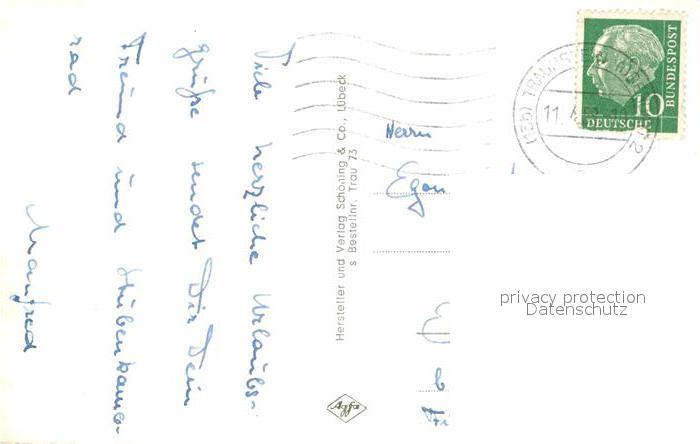 Viele herzliche Urlaubs-
grüße sendet Dir Dein
Freund und Stubenkame-
rad
Manfred
Hersteller und Verlag Schöning & Co., Lübeck
s Bestellnr. Trau 73
Agfa
Herrn
Egon
(13b) TRAUNSTEIN
11.
10
DEUTSCHE
BUNDESPOST
privacy protection
Datenschutz